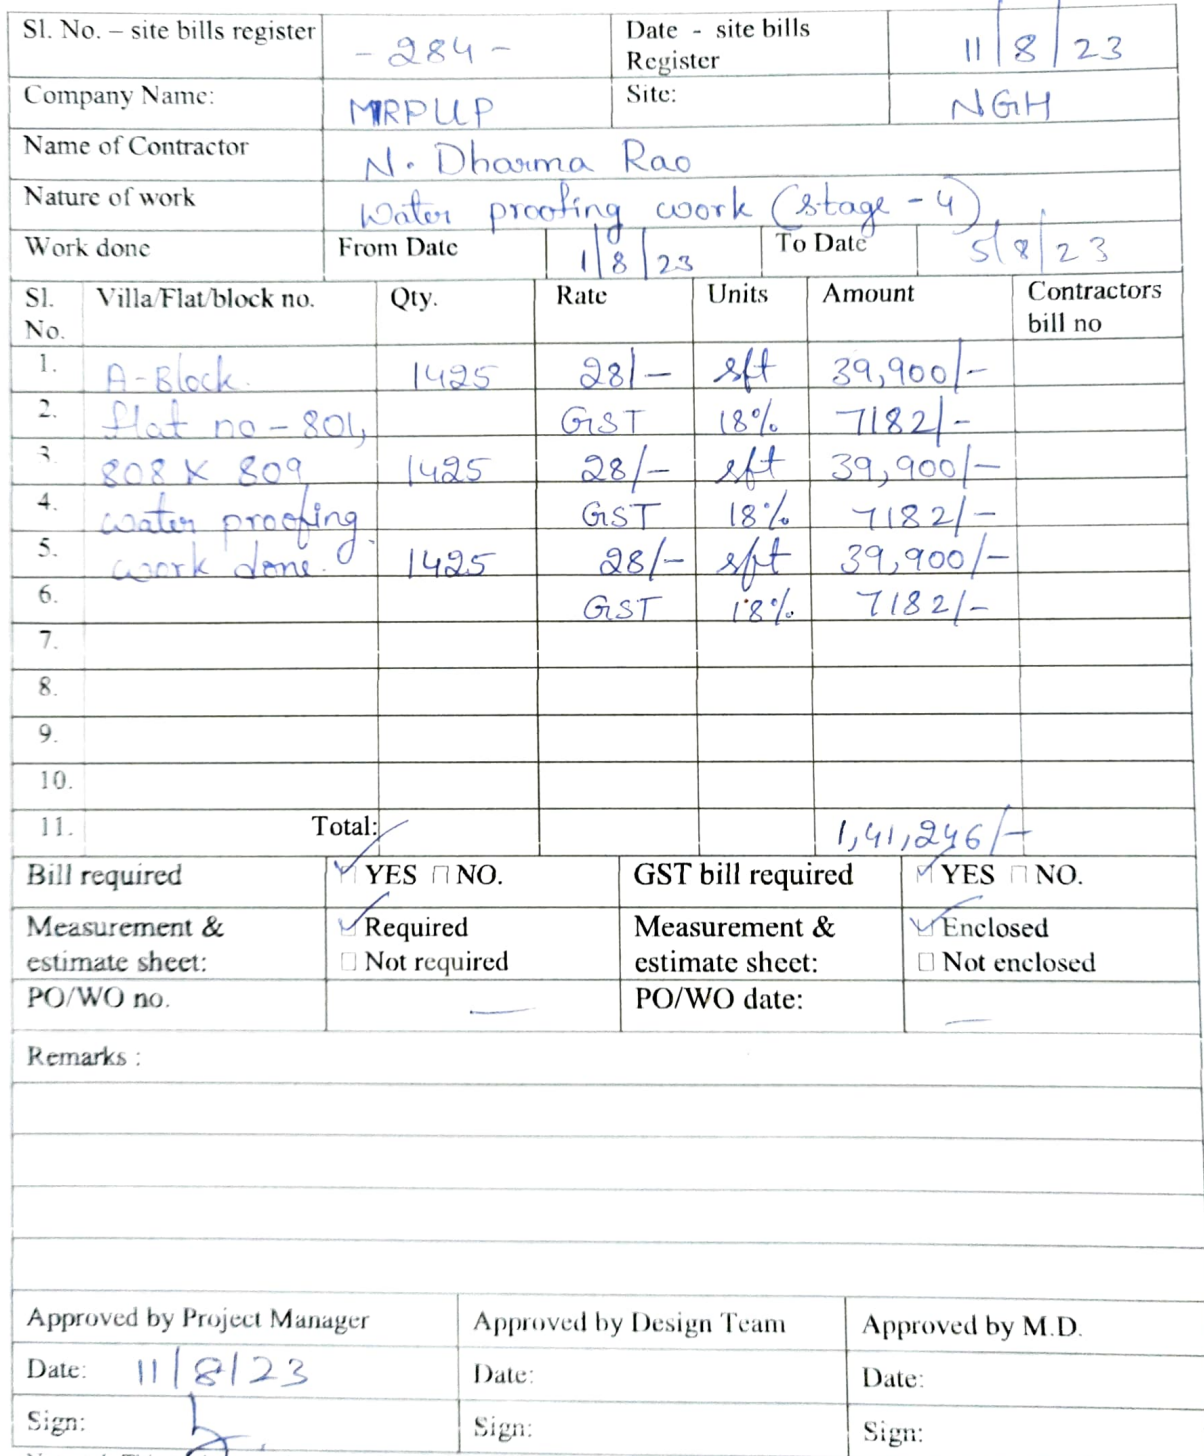 Sl. No. – site bills register - 284 - Date - site bills Register 11/8/23
Company Name: MRPLLP Site: NGH
Name of Contractor N. Dharma Rao
Nature of work Water proofing work (stage - 4)
Work done From Date 1/8/23 To Date 5/8/23
Sl. No. Villa/Flat/block no. Qty. Rate Units Amount Contractors bill no
1. A-Block. 1425 28/- sft 39,900/-
2. flat no - 801, GST 18% 7182/-
3. 808 & 809 1425 28/- sft 39,900/-
4. water proofing GST 18% 7182/-
5. work done. 1425 28/- sft 39,900/-
6. GST 18% 7182/-
7.
8.
9.
10.
11. Total: 1,41,246/-
Bill required YES NO. GST bill required YES NO.
Measurement & estimate sheet: Required Measurement & estimate sheet: Enclosed
Not required Not enclosed
PO/WO no. — PO/WO date: —
Remarks :
Approved by Project Manager Approved by Design Team Approved by M.D.
Date: 11/8/23 Date: Date:
Sign: Sign: Sign: